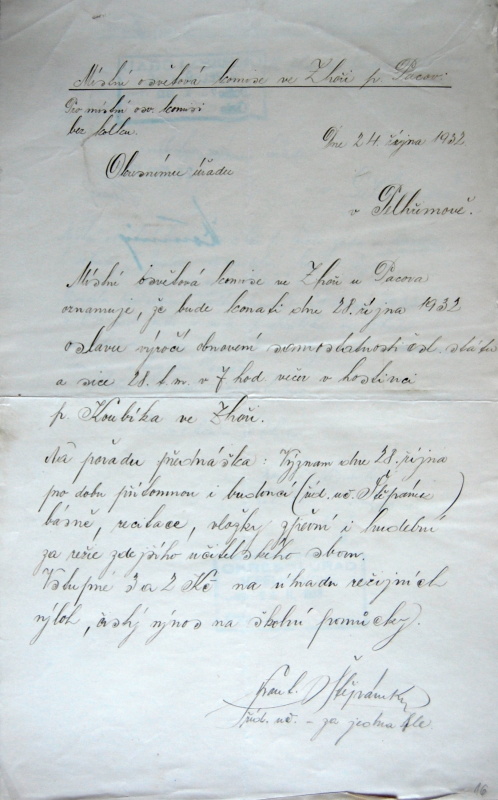 Místní osvětová komise ve Zhoři p. Pacov.
Pro místní osv. komisi
bez kolku.
Dne 24. října 1932
Okresnímu úřadu
v Pelhřimově.
Místní osvětová komise ve Zhoři u Pacova
oznamuje, že bude konati dne 28. října 1932
oslavu výročí obnovení samostatnosti čsl. státu
a sice 28. t.m. v 7 hod večer v hostinci
p. Koubíka ve Zhoři.
Na pořadu přednáška: Význam dne 28. října
pro dobu přítomnou i budoucí (říd. uč. Štěpánek)
básně, recitace, vložky zpěvní i hudební
za režie zdejšího učitelského sboru.
Vstupné 3 a 2 Kč na úhradu režijních
výloh, čistý výnos na školní pomůcky.
Frant. Štěpánek
říd. uč. - za jednatele.
16